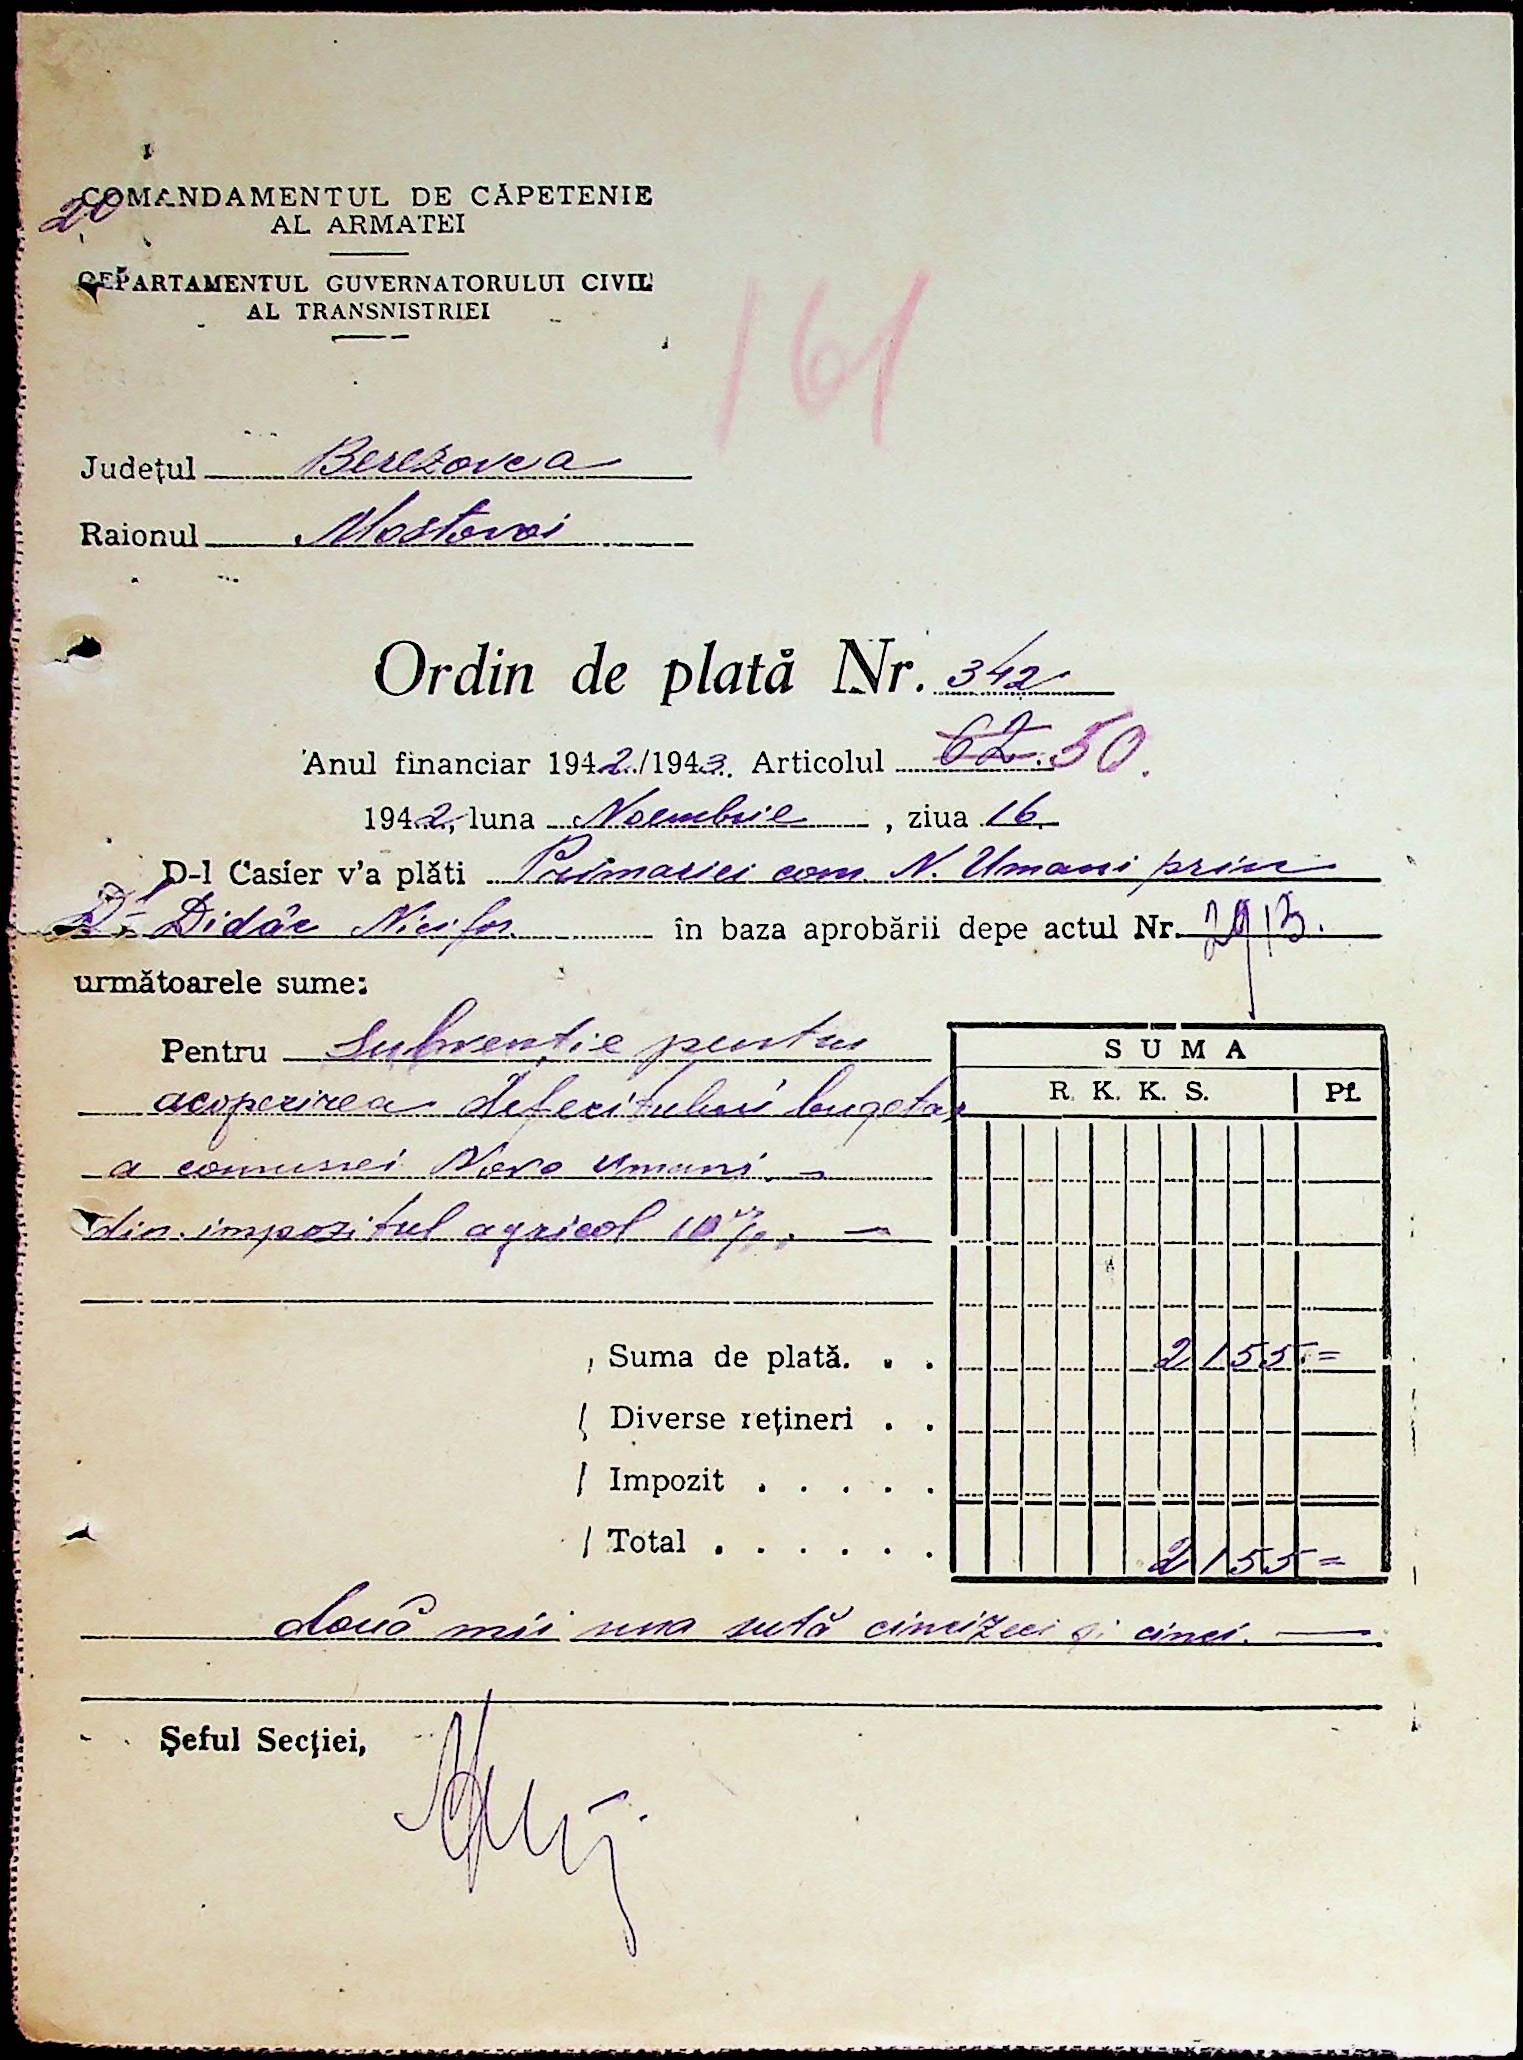 COMANDAMENTUL DE CĂPETENIE
20
AL ARMATEI
DEPARTAMENTUL GUVERNATORULUI CIVIL
AL TRANSNISTRIEI
161
Județul Berezovca
Raionul Mostovoi
Ordin de plată Nr. 342
Anul financiar 1942/1943. Articolul 62. 50.
1942, luna Noembrie, ziua 16.
D-l Casier v'a plăti Primariei com. N. Umani prin
D-l Didâc Nicifor în baza aprobării depe actul Nr. 2913.
următoarele sume:
Pentru Subvenție pentru
acoperirea deficitului bugetar
a comunei Novo Umani. –
din impozitul agricol 10%. –
SUMA
R. K. K. S. Pf.
Suma de plată. . . 2155.=
Diverse rețineri . .
Impozit . . . . .
Total . . . . . . 2155=
două mii una sută cincizeci și cinci. —
Șeful Secției,